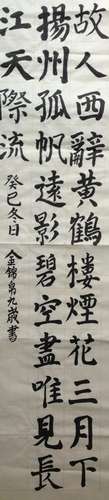 故人西辭黃鶴樓煙花三月下
揚州孤帆遠影碧空盡唯見長
江天際流
癸巳冬日 金錦帛九歲書